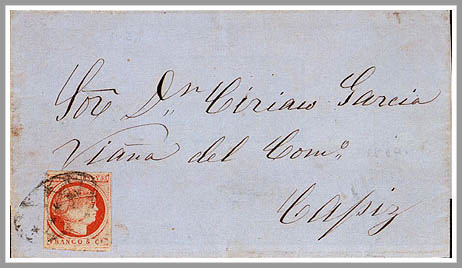 Sor. Dn. Ciriaco Garcia
Viaña del Como.
Capiz
FRANCO